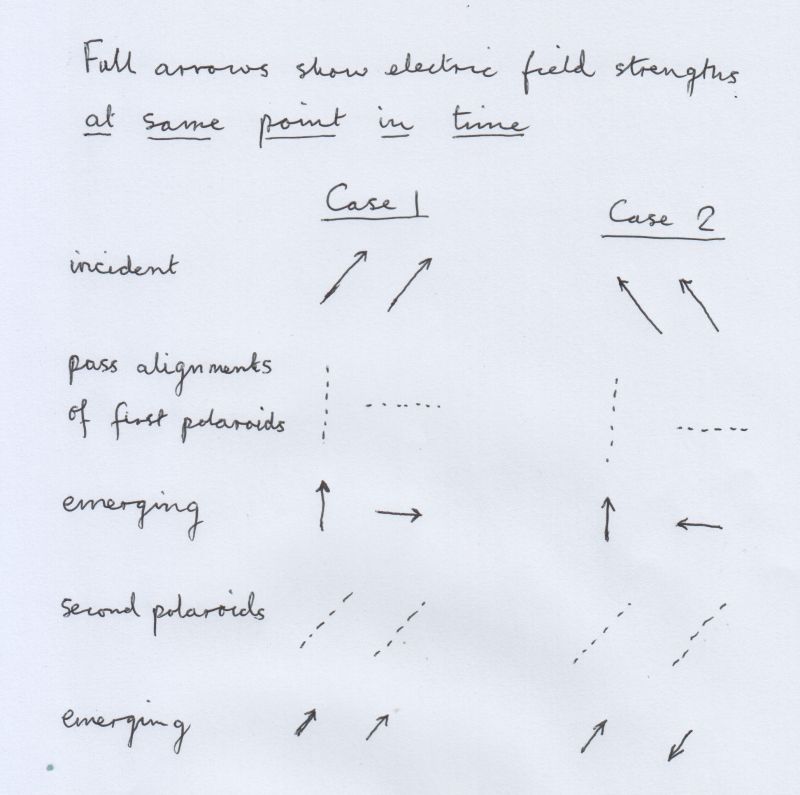 Full arrows show electric field strengths
at same point in time
Case 1
Case 2
incident
pass alignments
of first polaroids
emerging
second polaroids
emerging